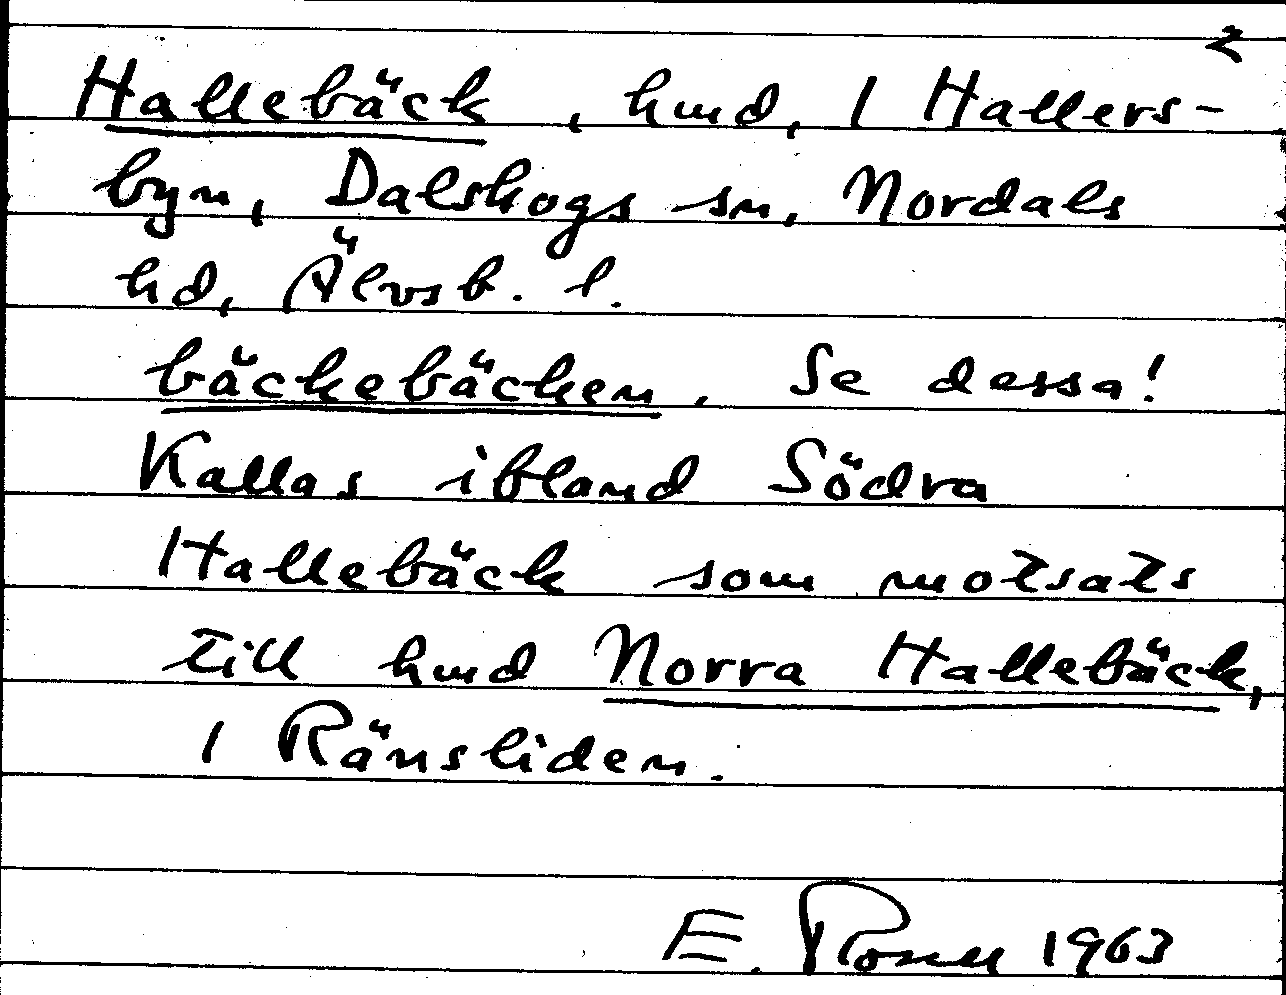 2
Hallebäck, hmd, 1 Hallers-
byn, Dalskogs sn, Nordals
hd, Älvsb. l.
bäckebäcken. Se dessa!
Kallas ibland Södra
Hallebäck som motsats
till hmd Norra Hallebäck,
1 Ränsliden.
E. 1963